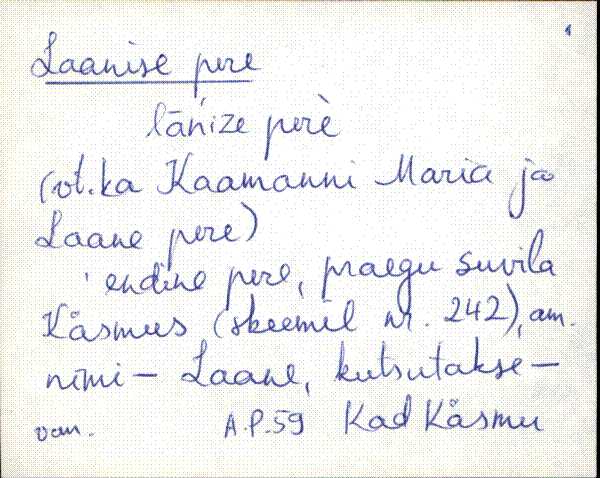 1
Laanise pere
lānize perè
(vt. ka Kaamanni Maria ja
Laane pere)
endine pere, praegu suvila
Käsmus (skeemil nr. 242), am.
nimi – Laane, kutsutakse –
van. A.P.59 Kad Käsmu